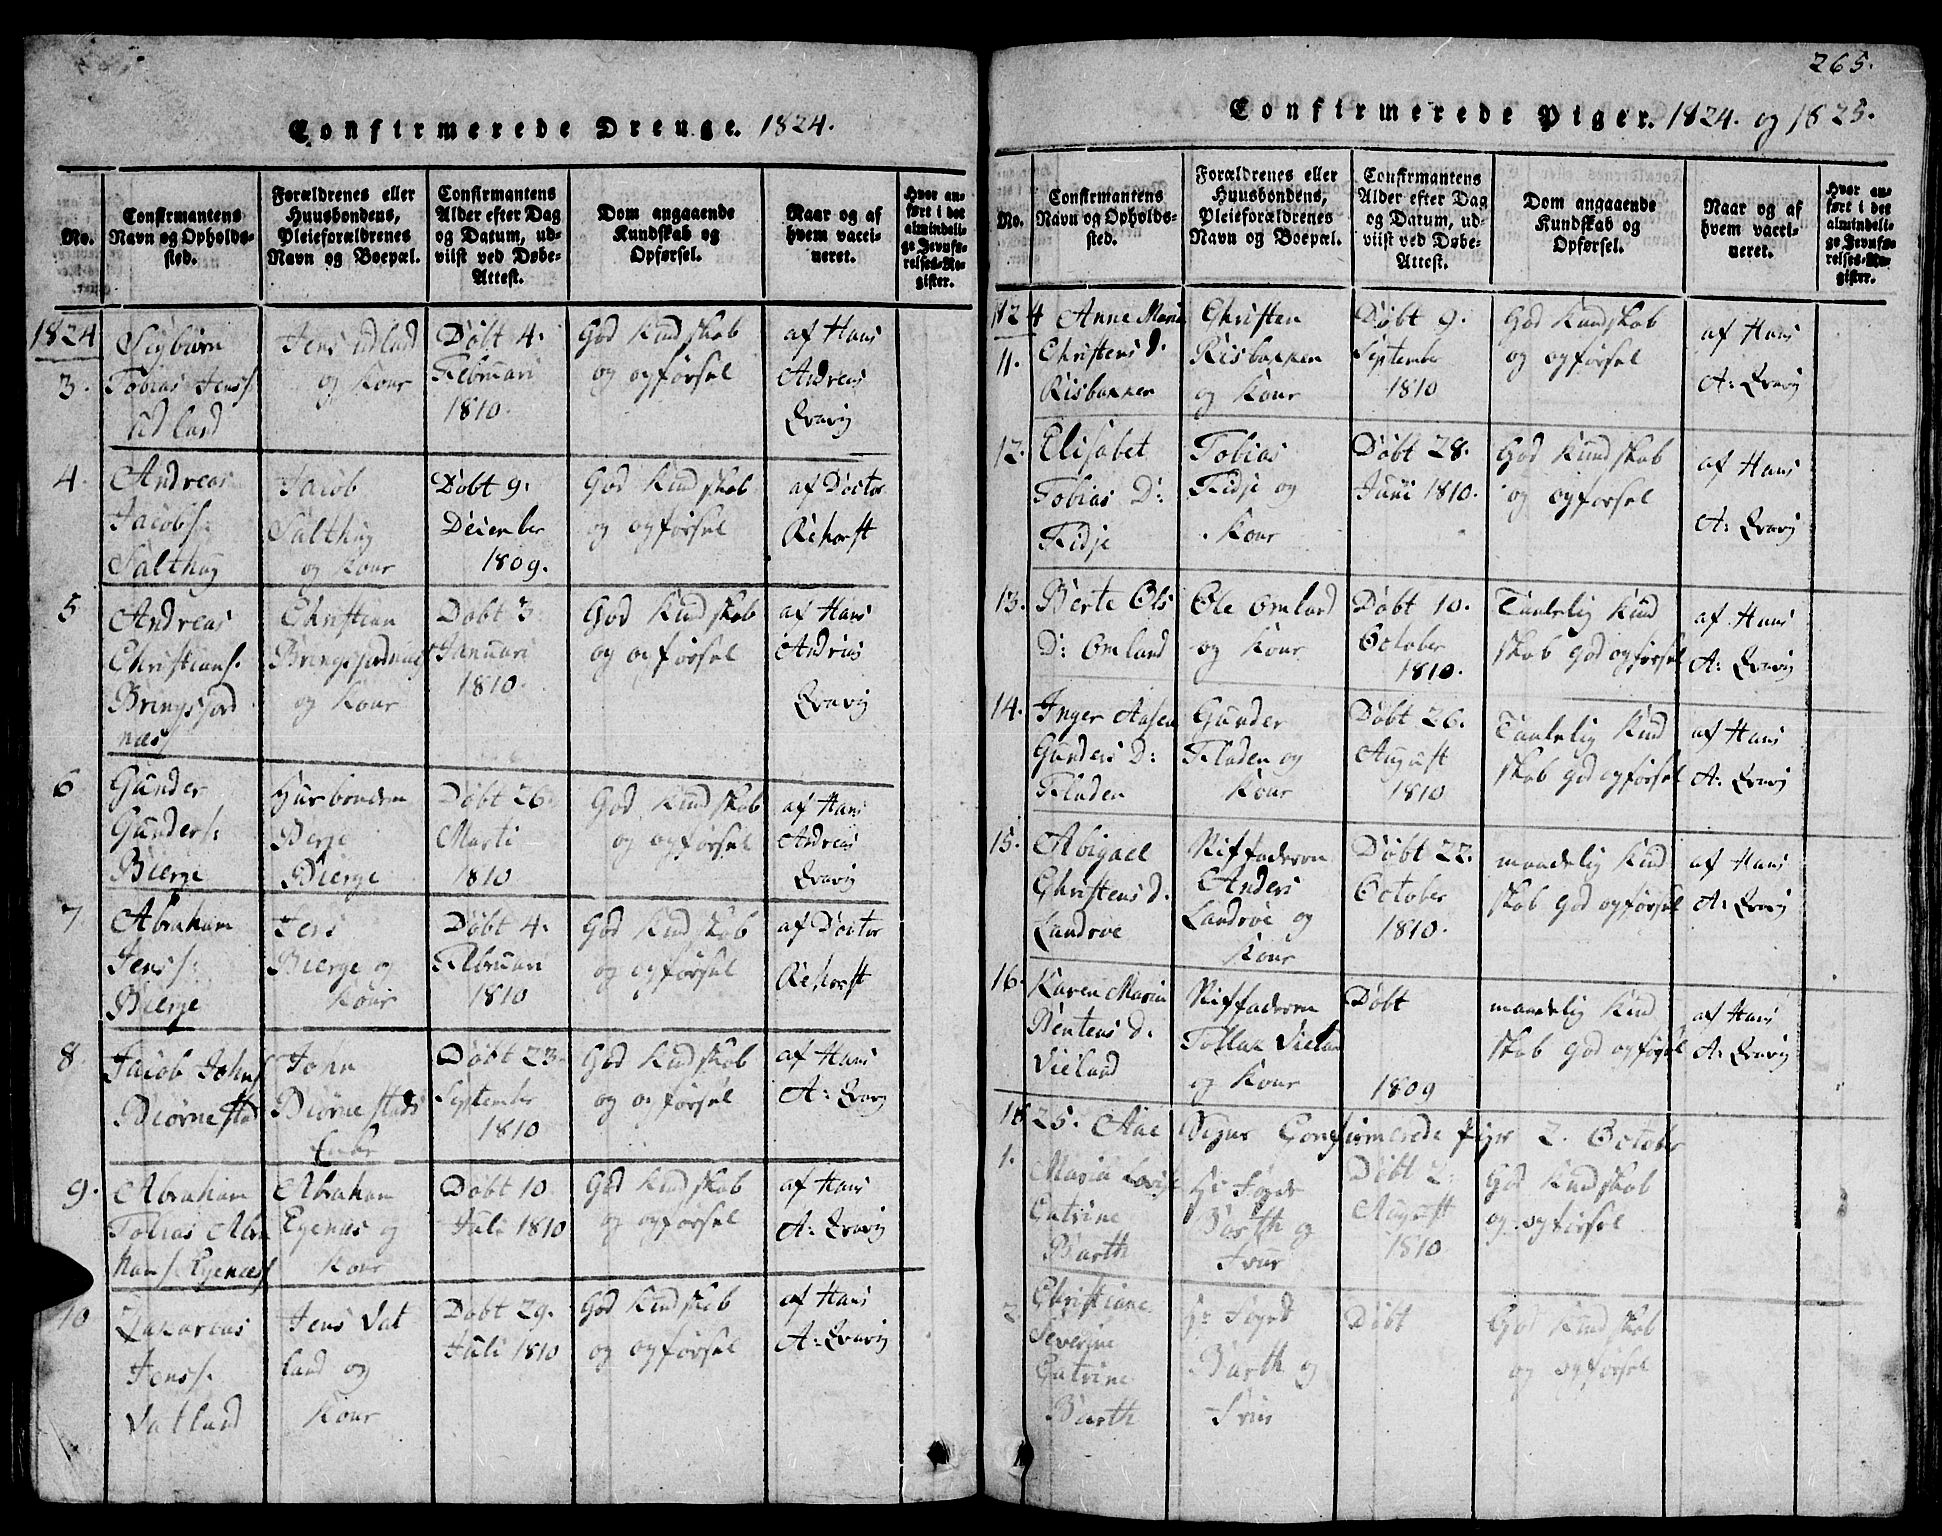 Confirmerede Drenge. 1824.
No.
Confirmantens
Navn og Opholds-
sted.
Forældrenes eller
Huusbondens,
Pleieforældrenes
Navn og Boepæl.
Confirmantens
Alder efter Dag
og Datum, ud-
viist ved Døbe-
Attest.
Dom angaaende
Kundskab og
Opførsel.
Naar og af
hvem vacci-
neret.
Hvor an-
ført i det
almindeli-
ge Jevnfø-
relses-Re-
gister.
1824
3.
Sigbiørn
Tobias Jens s.
Udland
Jens Udland
og Kone
Døbt 4.
Februari
1810.
God Kundskab
og opførsel
af Hans
Andreas
Qvavig
4.
Andreas
Jacobs:
Salthug
Jacob
Salthug
og Kone
Døbt 9.
December
1809.
God Kundskab
og opførsel
af Doctor
Rehorst
5
Andreas
Christians.
Bringsjord
næs
Christian
Bringsjordnæs
og Kone
Døbt 3
Januari
1810.
God Kundskab
og opførsel
af Hans
Andreas
Qvavig
6
Gunder
Gunders:
Bierge
Husbonden
Berje
Bierge
Døbt 26.
Marti
1810
God Kundskab
og opførsel
af Hans
Andreas
Qvavig
7.
Abraham
Jens s:
Bierge
Jens
Bierge og
Kone
Døbt 4.
Februari
1810
God Kundskab
og opførsel
af Doctor
Rehorst
8
Jacob Johns
Biørnestad
John
Biørnestads
Enke
Døbt 23.
September
1810
God Kundskab
og opførsel
af Hans
A: Qvavig
9.
Abraham
Tobias Abra
hams. Egenæs
Abraham
Egenæs og
Kone
Døbt 10
Juli 1810
God Kundskab
og opførsel
af Hans
A: Qvavig
10
Zakarias
Jens s.
Vatland
Jens Vat
land og
Kone
Døbt 29.
Juli 1810
God Kundskab
og opførsel
af Hans
A: Qvavig
265.
Confirmerede Piger. 1824. og 1825.
No.
Confirmantens
Navn og Opholds-
sted.
Forældrenes eller
Huusbondens,
Pleieforældrenes
Navn og Boepæl.
Confirmantens
Alder efter Dag
og Datum, ud-
viist ved Døbe-
Attest.
Dom angaaende
Kundskab og
Opførsel.
Naar og af
hvem vacci-
neret.
Hvor an-
ført i det
almindeli-
ge Jevnfø-
relses-Re-
gister.
1824
11.
Anne Maria
Christens d.
Risbakken
Christen
Risbakken
og Kone
Døbt 9.
September
1810
God Kundskab
og opførsel
af Hans
A: Qvavig
12.
Elisabet
Tobias D:
Fidje
Tobias
Fidje og
Kone
Døbt 28.
Juni 1810.
God Kundskab
og opførsel
af Hans
A: Qvavig
13.
Berte Ols
D: Omland
Ole Omland
og Kone
Døbt 10.
October
1810.
Taalelig Kund
skab god opførsel
af Hans
A: Qvavig
14.
Inger Aasen
Gunders D:
Fladen
Gunder
Fladen og
Kone
Døbt 26.
August
1810
Taalelig Kund
skab god opførsel
af Hans
A: Qvavig
15.
Abigael
Christens d.
Landrøe
Stiffaderen
Anders
Landrøe og
Kone
Døbt 22.
October
1810.
maadelig Kund
skab god opførsel
af Hans
A: Qvavig
16.
Karen Maria
Bentens d.
Vieland
Stiffaderen
Tollak Vieland
og Kone
Døbt
1809
maadelig Kund
skab god opførsel
af Hans
A: Qvavig
1825. Aae Sogns Confirmerede piger 2. October
1.
Maria Lovise
Catrine
Barth
Hr Foged
Barth og
Frue
Døbt 2.
August
1810
God Kundskab
og opførsel
2.
Christiane
Severine
Catrine
Barth
Hr Foged
Barth og
Frue
Døbt
God Kundskab
og opførsel